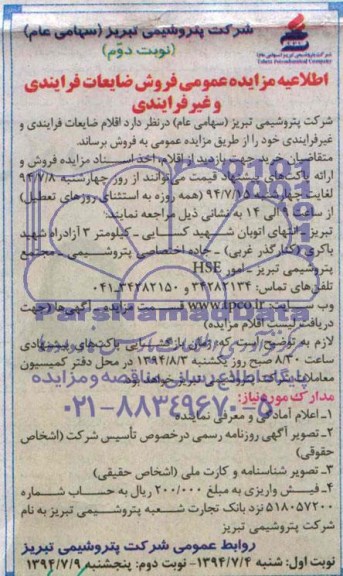 شرکت پتروشیمی تبریز (سهامی عام)
(نوبت دوّم)
شرکت پتروشیمی تبریز (سهامی عام)
Tabriz Petrochemical Company
اطلاعیه مزایده عمومی فروش ضایعات فرایندی
و غیر فرایندی
شرکت پتروشیمی تبریز (سهامی عام) درنظر دارد اقلام ضایعات فرایندی و
غیرفرایندی خود را از طریق مزایده عمومی به فروش برساند.
متقاضیان خرید جهت بازدید از اقلام، اخذ اسناد مزایده فروش و
ارائه پاکت‌های پیشنهاد قیمت می‌توانند از روز چهارشنبه ۹۴/۷/۸
لغایت چهارشنبه ۹۴/۷/۱۵ (همه روزه به استثنای روزهای تعطیل)
از ساعت ۹ الی ۱۴ به نشانی ذیل مراجعه نمایند:
تبریز ـ انتهای اتوبان شهید کسایی ـ کیلومتر ۳ آزادراه شهید
باکری (کنارگذر غربی) ـ جاده اختصاصی پتروشیمی ـ مجتمع
پتروشیمی تبریز ـ امور HSE
تلفن‌های تماس: ۳۴۲۸۲۱۳۴ و ۳۴۲۸۲۱۵۰-۰۴۱
وب سایت: www.tpco.ir قسمت مزایده ـ آگهی‌ها (جهت
دریافت لیست اقلام مزایده)
لازم به توضیح است که زمان بازگشایی پاکت‌های پیشنهادی
ساعت ۸/۳۰ صبح روز یکشنبه ۱۳۹۴/۸/۳ در محل دفتر کمیسیون
معاملات شرکت پتروشیمی تبریز خواهد بود.
پایگاه اطلاع رسانی مناقصه و مزایده
ParsNamadData
۰۲۱-۸۸۳۴۹۶۷۰-۵
مدارک مورد نیاز:
۱ـ اعلام آمادگی و معرفی نماینده
۲ـ تصویر آگهی روزنامه رسمی درخصوص تأسیس شرکت (اشخاص
حقوقی)
۳ـ تصویر شناسنامه و کارت ملی (اشخاص حقیقی)
۴ـ فیش واریزی به مبلغ ۲۰۰/۰۰۰ ریال به حساب شماره
۵۱۸۰۵۷۲۰۰ نزد بانک تجارت شعبه پتروشیمی تبریز به نام
شرکت پتروشیمی تبریز
روابط عمومی شرکت پتروشیمی تبریز
نوبت اول: شنبه ۱۳۹۴/۷/۴ - نوبت دوم: پنجشنبه ۱۳۹۴/۷/۹